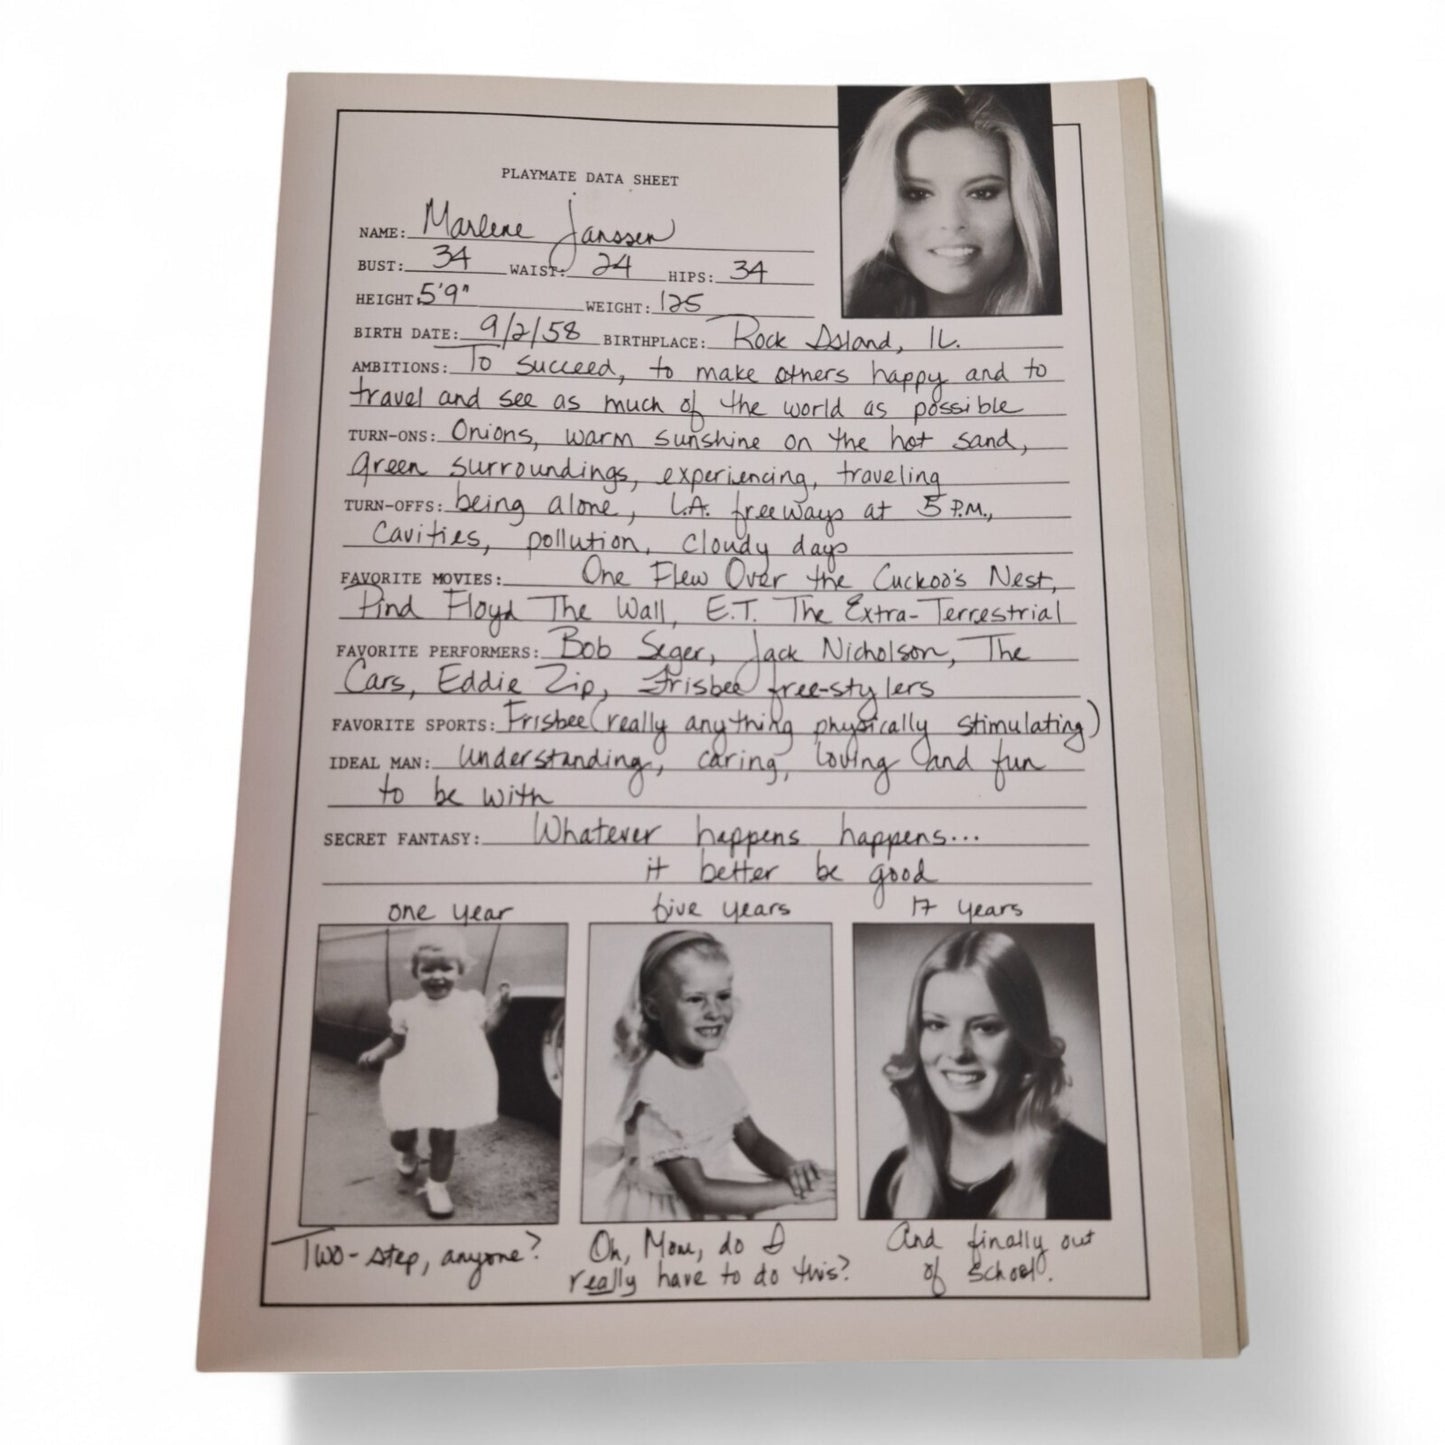 PLAYMATE DATA SHEET
NAME: Marlene Janssen
BUST: 34 WAIST: 24 HIPS: 34
HEIGHT: 5'9" WEIGHT: 125
BIRTH DATE: 9/2/58 BIRTHPLACE: Rock Island, IL.
AMBITIONS: To succeed, to make others happy and to
travel and see as much of the world as possible
TURN-ONS: Onions, warm sunshine on the hot sand,
green surroundings, experiencing, traveling
TURN-OFFS: being alone, L.A. freeways at 5 P.M.,
cavities, pollution, cloudy days
FAVORITE MOVIES: One Flew Over the Cuckoo's Nest,
Pink Floyd The Wall, E.T. The Extra-Terrestrial
FAVORITE PERFORMERS: Bob Seger, Jack Nicholson, The
Cars, Eddie Zip, Frisbee free-stylers
FAVORITE SPORTS: Frisbee (really anything physically stimulating)
IDEAL MAN: understanding, caring, loving and fun
to be with
SECRET FANTASY: Whatever happens happens...
it better be good
one year five years 17 years
Two-step, anyone?
Oh, Mom, do I
really have to do this?
And finally out
of school.